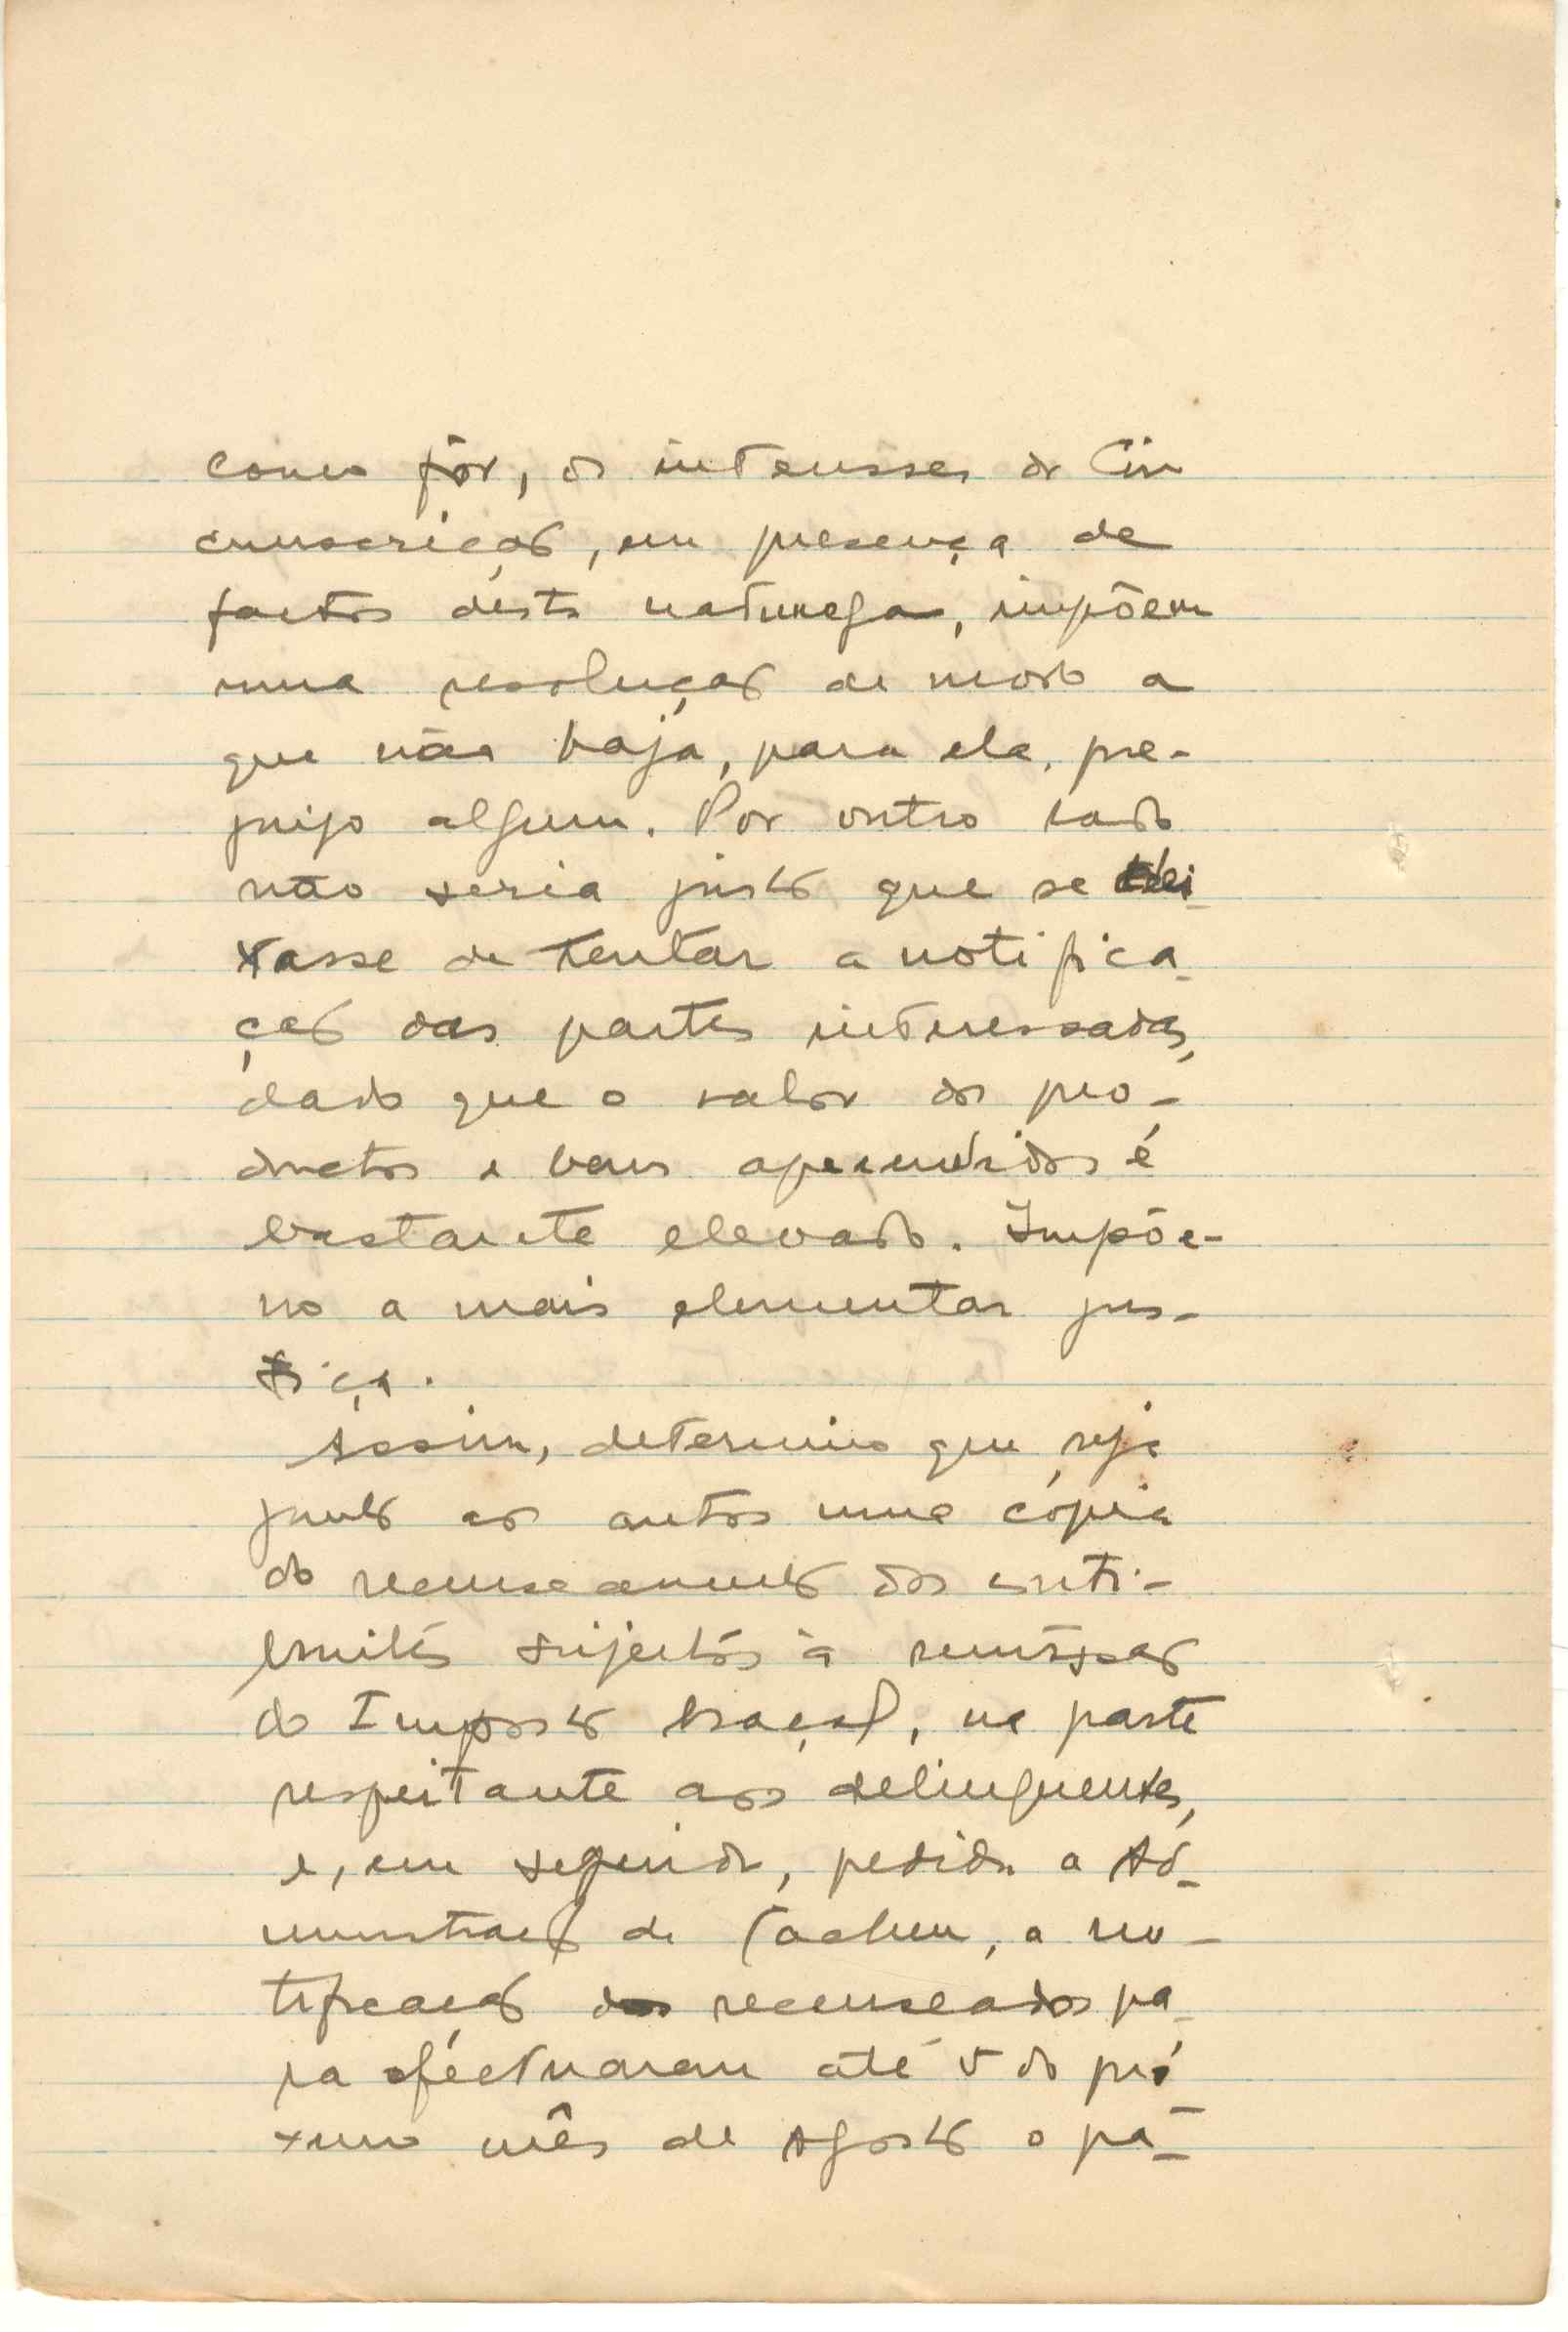 como fôr, os interêsses da Cir
cunscrição, em presença de
factos desta natureza, impõem
uma resolução de modo a
que não haja, para ela, pre-
juizo algum. Por outro lado
não seria justo que se dei-
xasse de tentar a notifica-
ção das partes interessadas,
dado que o valor dos pro-
ductos e bens apreendidos é
bastante elevado. Impõe-
no a mais elementar jus-
tiça.
Assim, determino que seja
junto aos autos uma cópia
do recenseamento dos contri-
buintes sujeitos à remissão
do Imposto braçal, na parte
respeitante aos delinquentes,
e, em seguida, pedida a Ad-
ministração de Cacheu, a no-
tificação dos recenseados pa-
ra eféctuarem até 5 do pró
ximo mês de Agosto o pa-